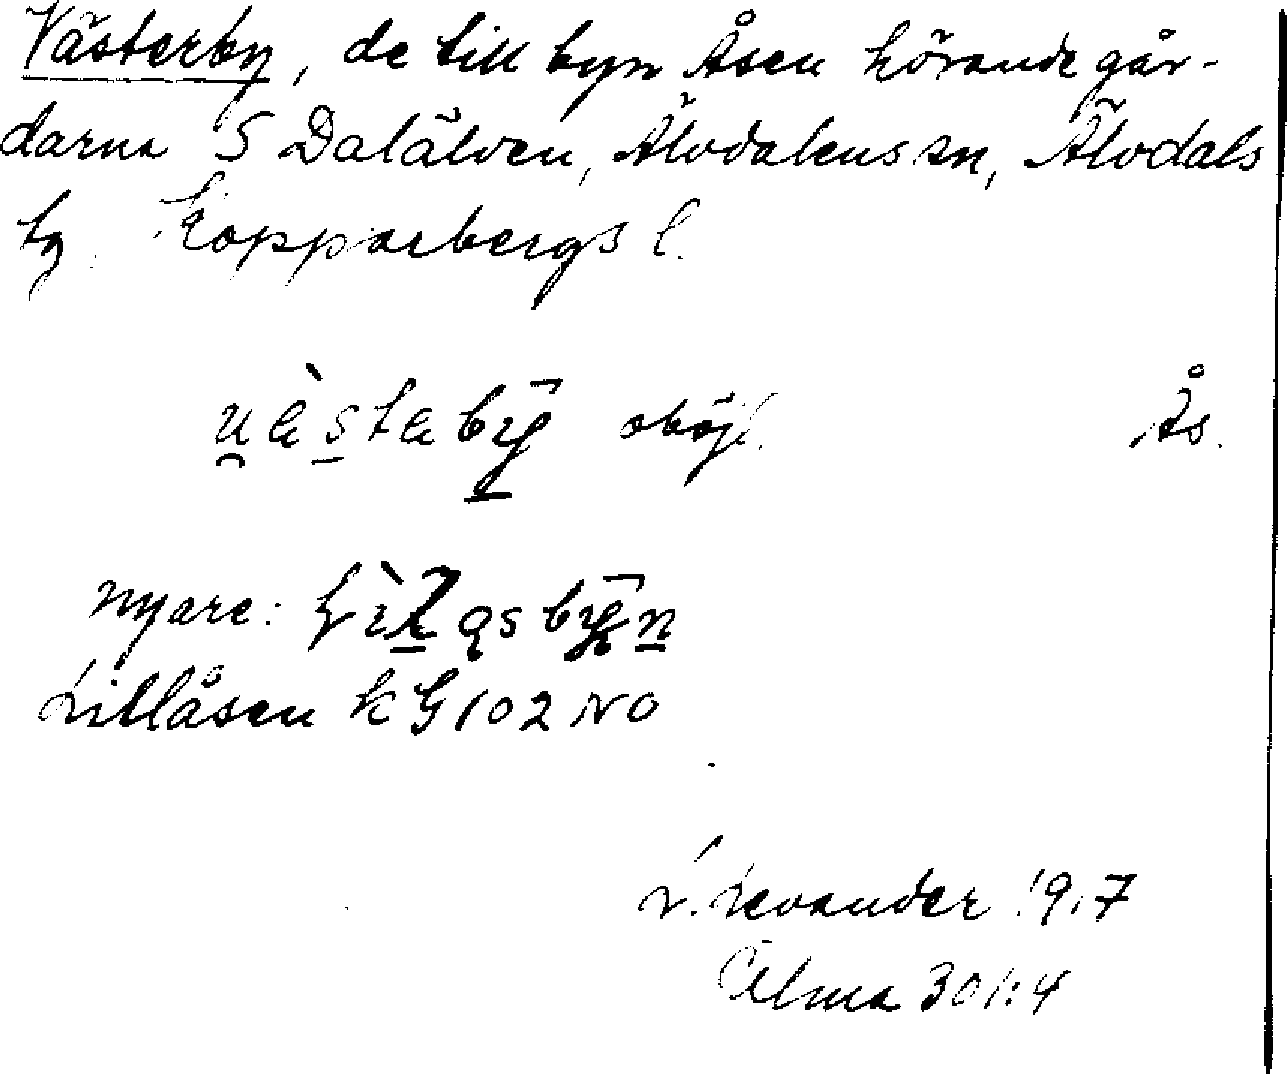 Västerby, de till byn Åsen hörande går-
darna S Dalälven, Älvdalens sn, Älvdals
tg. Kopparbergs l.
u̯æ̀stæbȳ oböjl. Ås.
nyare:
Lillåsen k G 102 NO
L. Levander 1917
Ulma 301:4